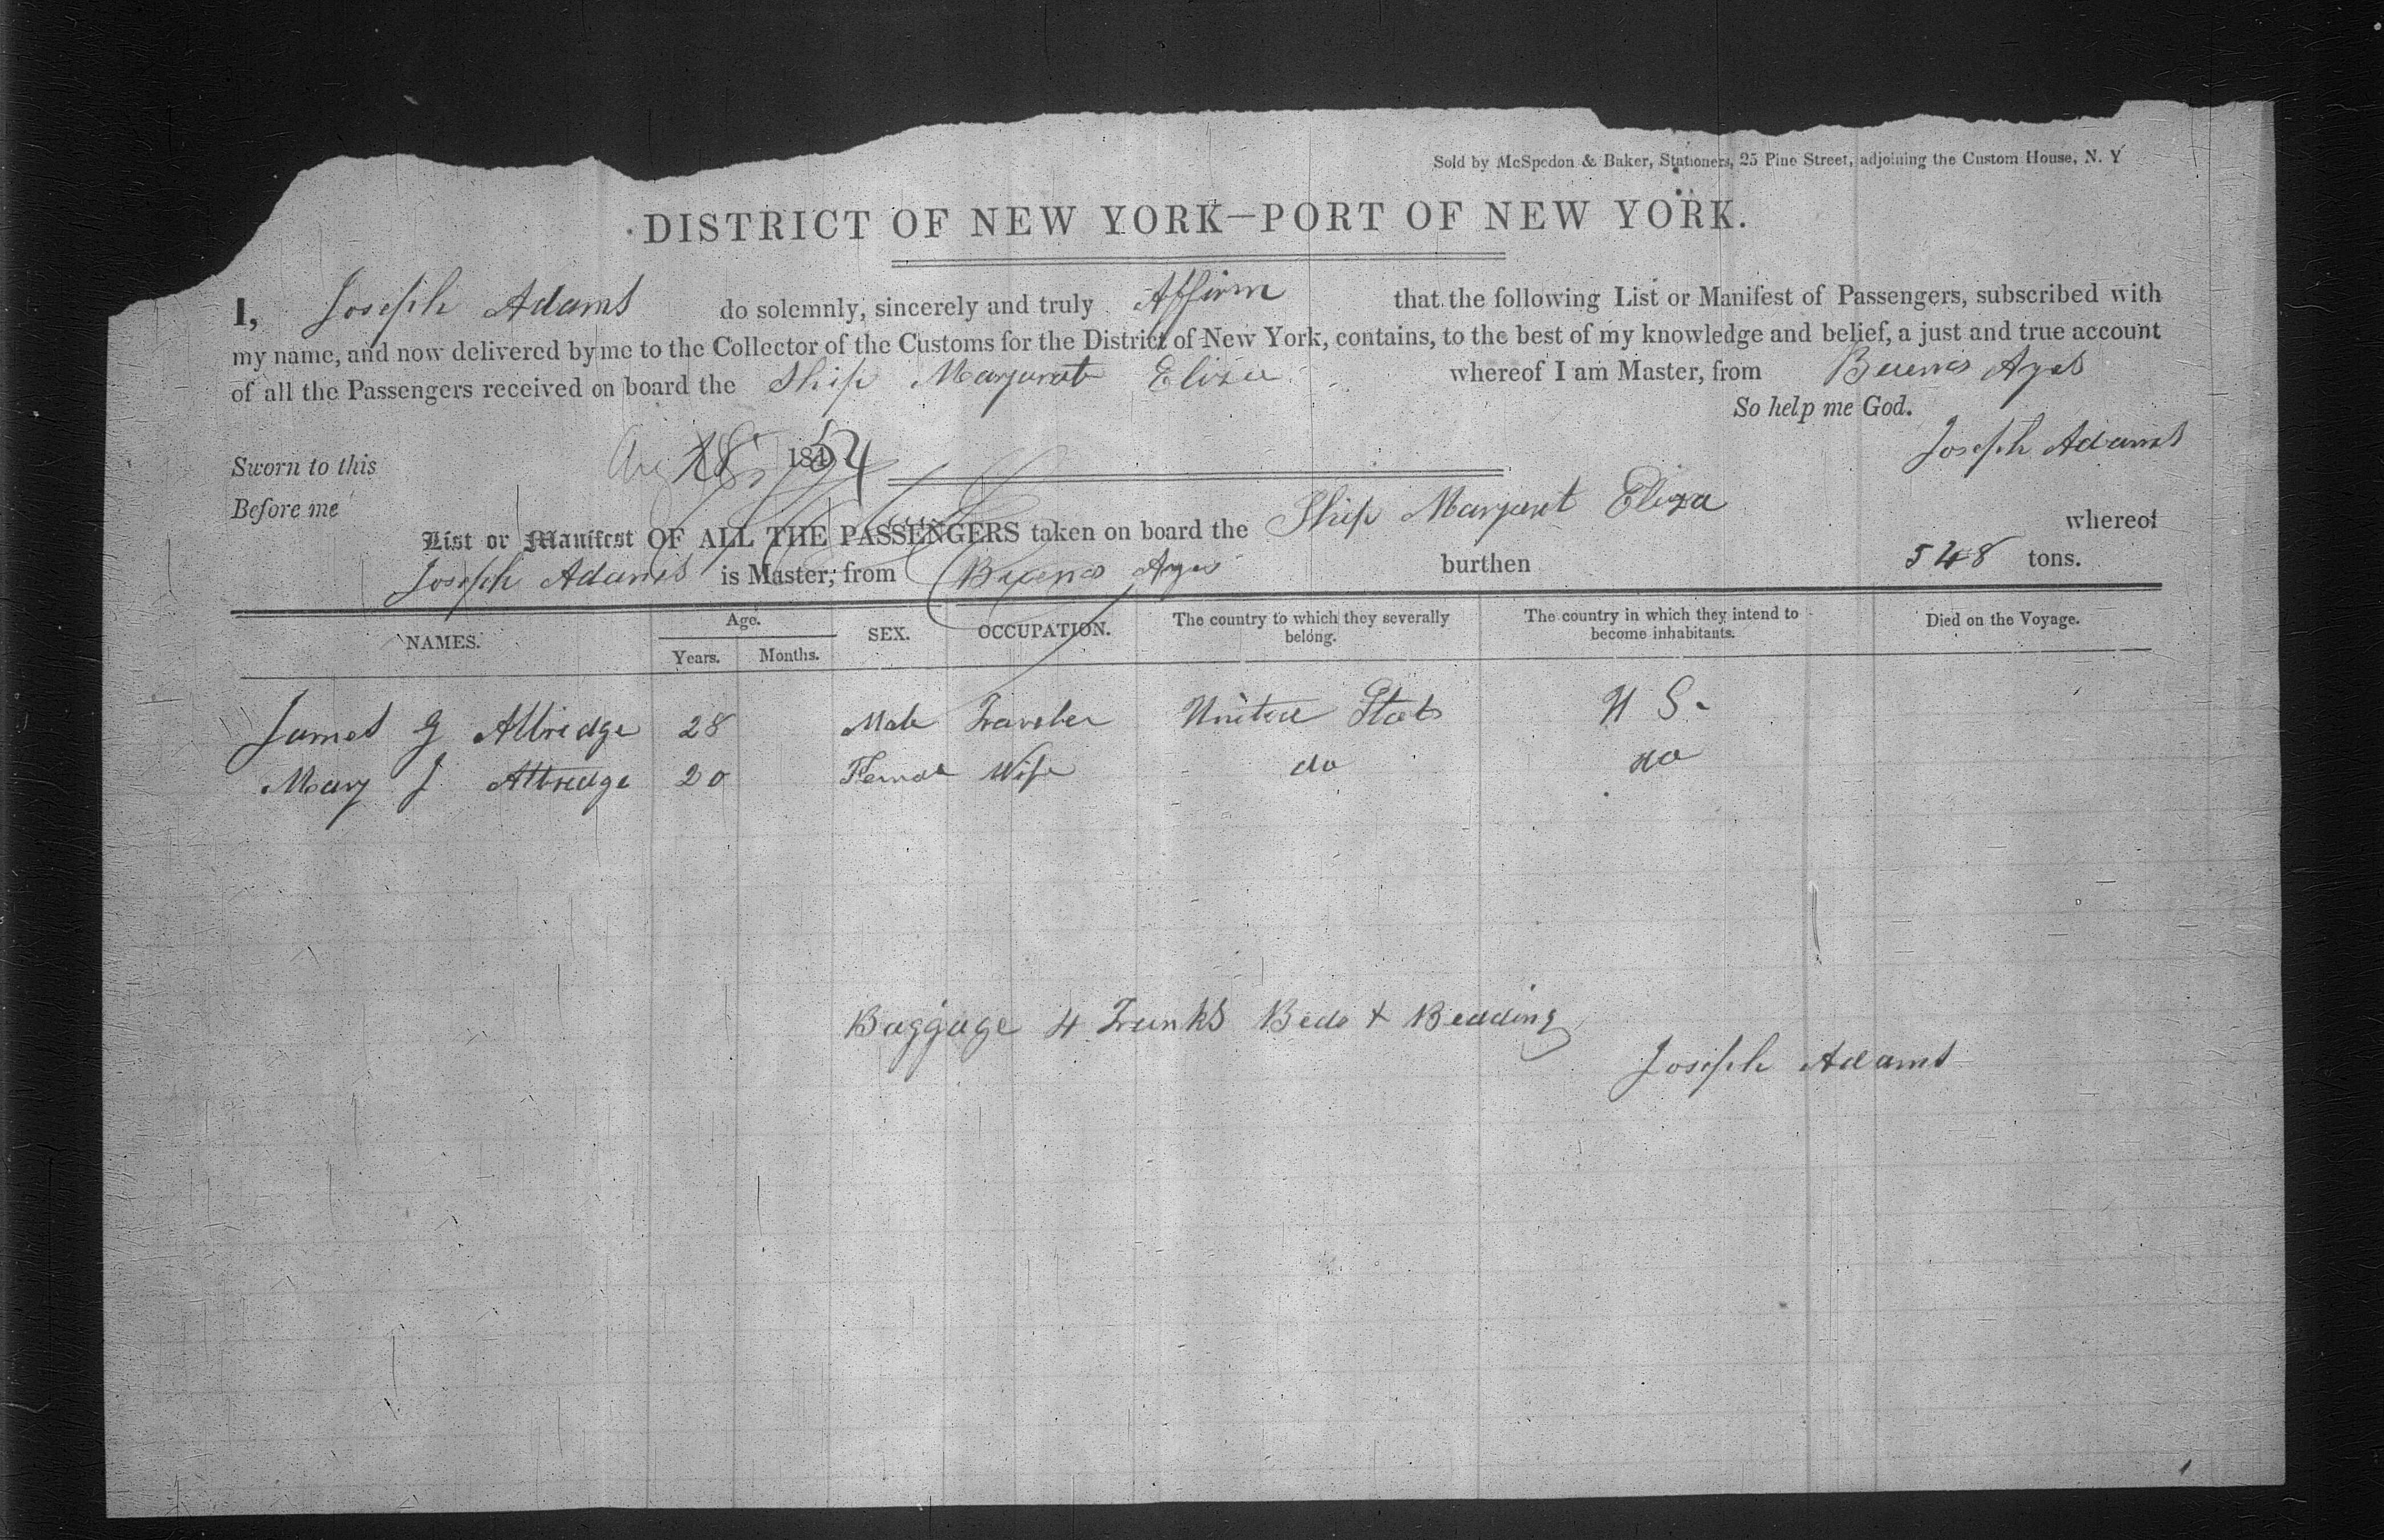 Sold by McSpedon & Baker, Stationers, 25 Pine Street, adjoining the Custom House, N. Y
DISTRICT OF NEW YORK—PORT OF NEW YORK.
I, Joseph Adams do solemnly, sincerely and truly Affirm that the following List or Manifest of Passengers, subscribed with
my name, and now delivered by me to the Collector of the Customs for the District of New York, contains, to the best of my knowledge and belief, a just and true account
of all the Passengers received on board the Ship Margarat Eliza whereof I am Master, from Buenos Ayes
So help me God.
Sworn to this Aug 1854 Joseph Adams
Before me
List or Manifest OF ALL THE PASSENGERS taken on board the Ship Margaret Eliza whereof
Joseph Adams is Master, from Buenos Ayes burthen 548 tons.
NAMES. Age. Years. Months. SEX. OCCUPATION. The country to which they severally belong. The country in which they intend to become inhabitants. Died on the Voyage.
James G Albridge 28 Male Traveler United Stats U S.
Mary J Albredge 20 Female Wife do do
Baggage 4 Trunks Beds & Bedding
Joseph Adams